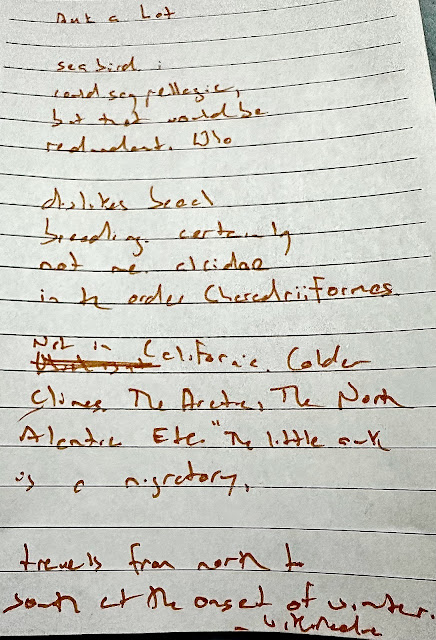 Auk a Lot
seabird. i
could say pellagic,
but that would be
redundant. Who
dislikes beach
breeding. certainly
not me. alcidae
in the order Charadriiformes
Not in California. Colder
Climes. The Arctic, The North
Atlantic Etc. "The little auk
is a migratory,
travels from north to
south at the onset of winter.
- Wikipedia